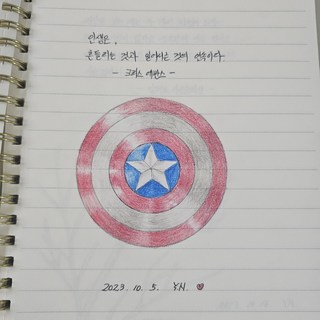 인생은,
흔들리는 것과 일어서는 것의 연속이다
- 크리스 에반스 -
2023. 10. 5.